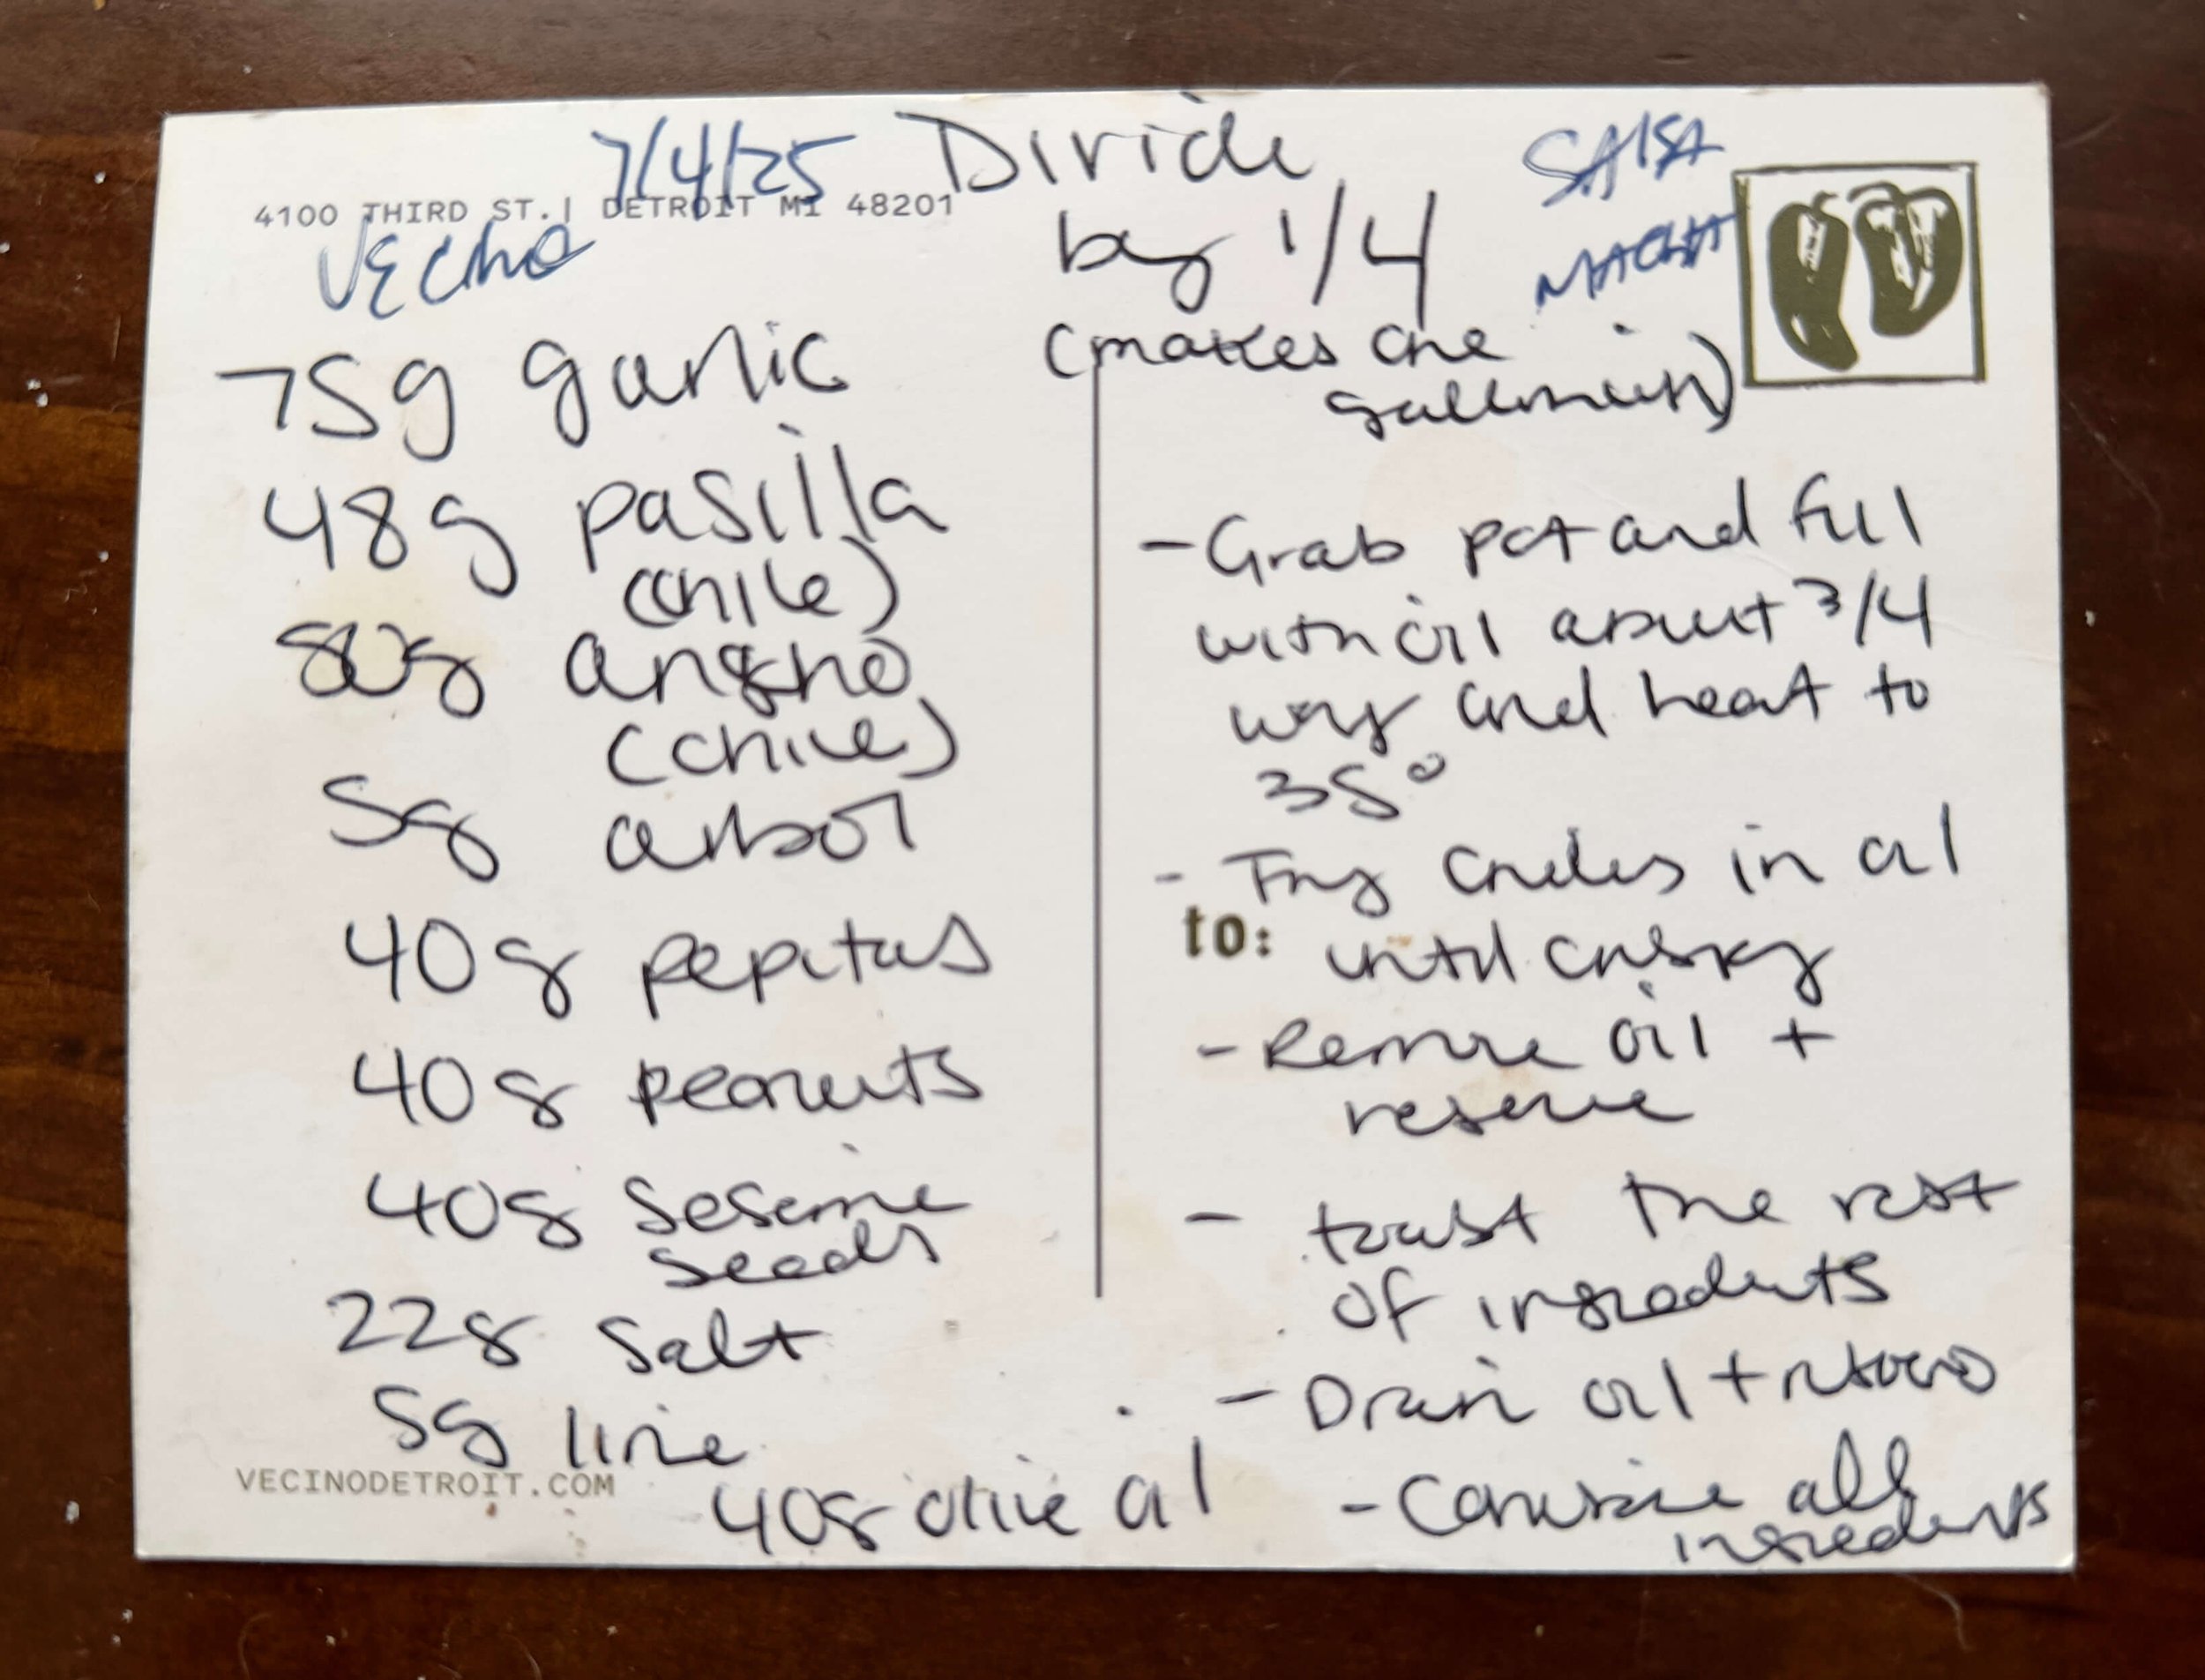 7/4/25 Divide
SALSA
4100 THIRD ST. | DETROIT MI 48201
Vecino
by 1/4
MACHA
(makes one
gallon
75g garlic
48g pasilla
(chile)
80g ancho
(chile)
5g arbol
40g pepitas
40g peanuts
40g Sesame
seeds
22g Salt
5g lime
VECINODETROIT.COM
40g olive oil
- Grab pot and fill
with oil about 3/4
way and heat to
35°
- Fry chiles in oil
to:
until crispy
- Remove oil +
reserve
- toast the rest
of ingredients
- Drain oil +
- Combine all
ingredients